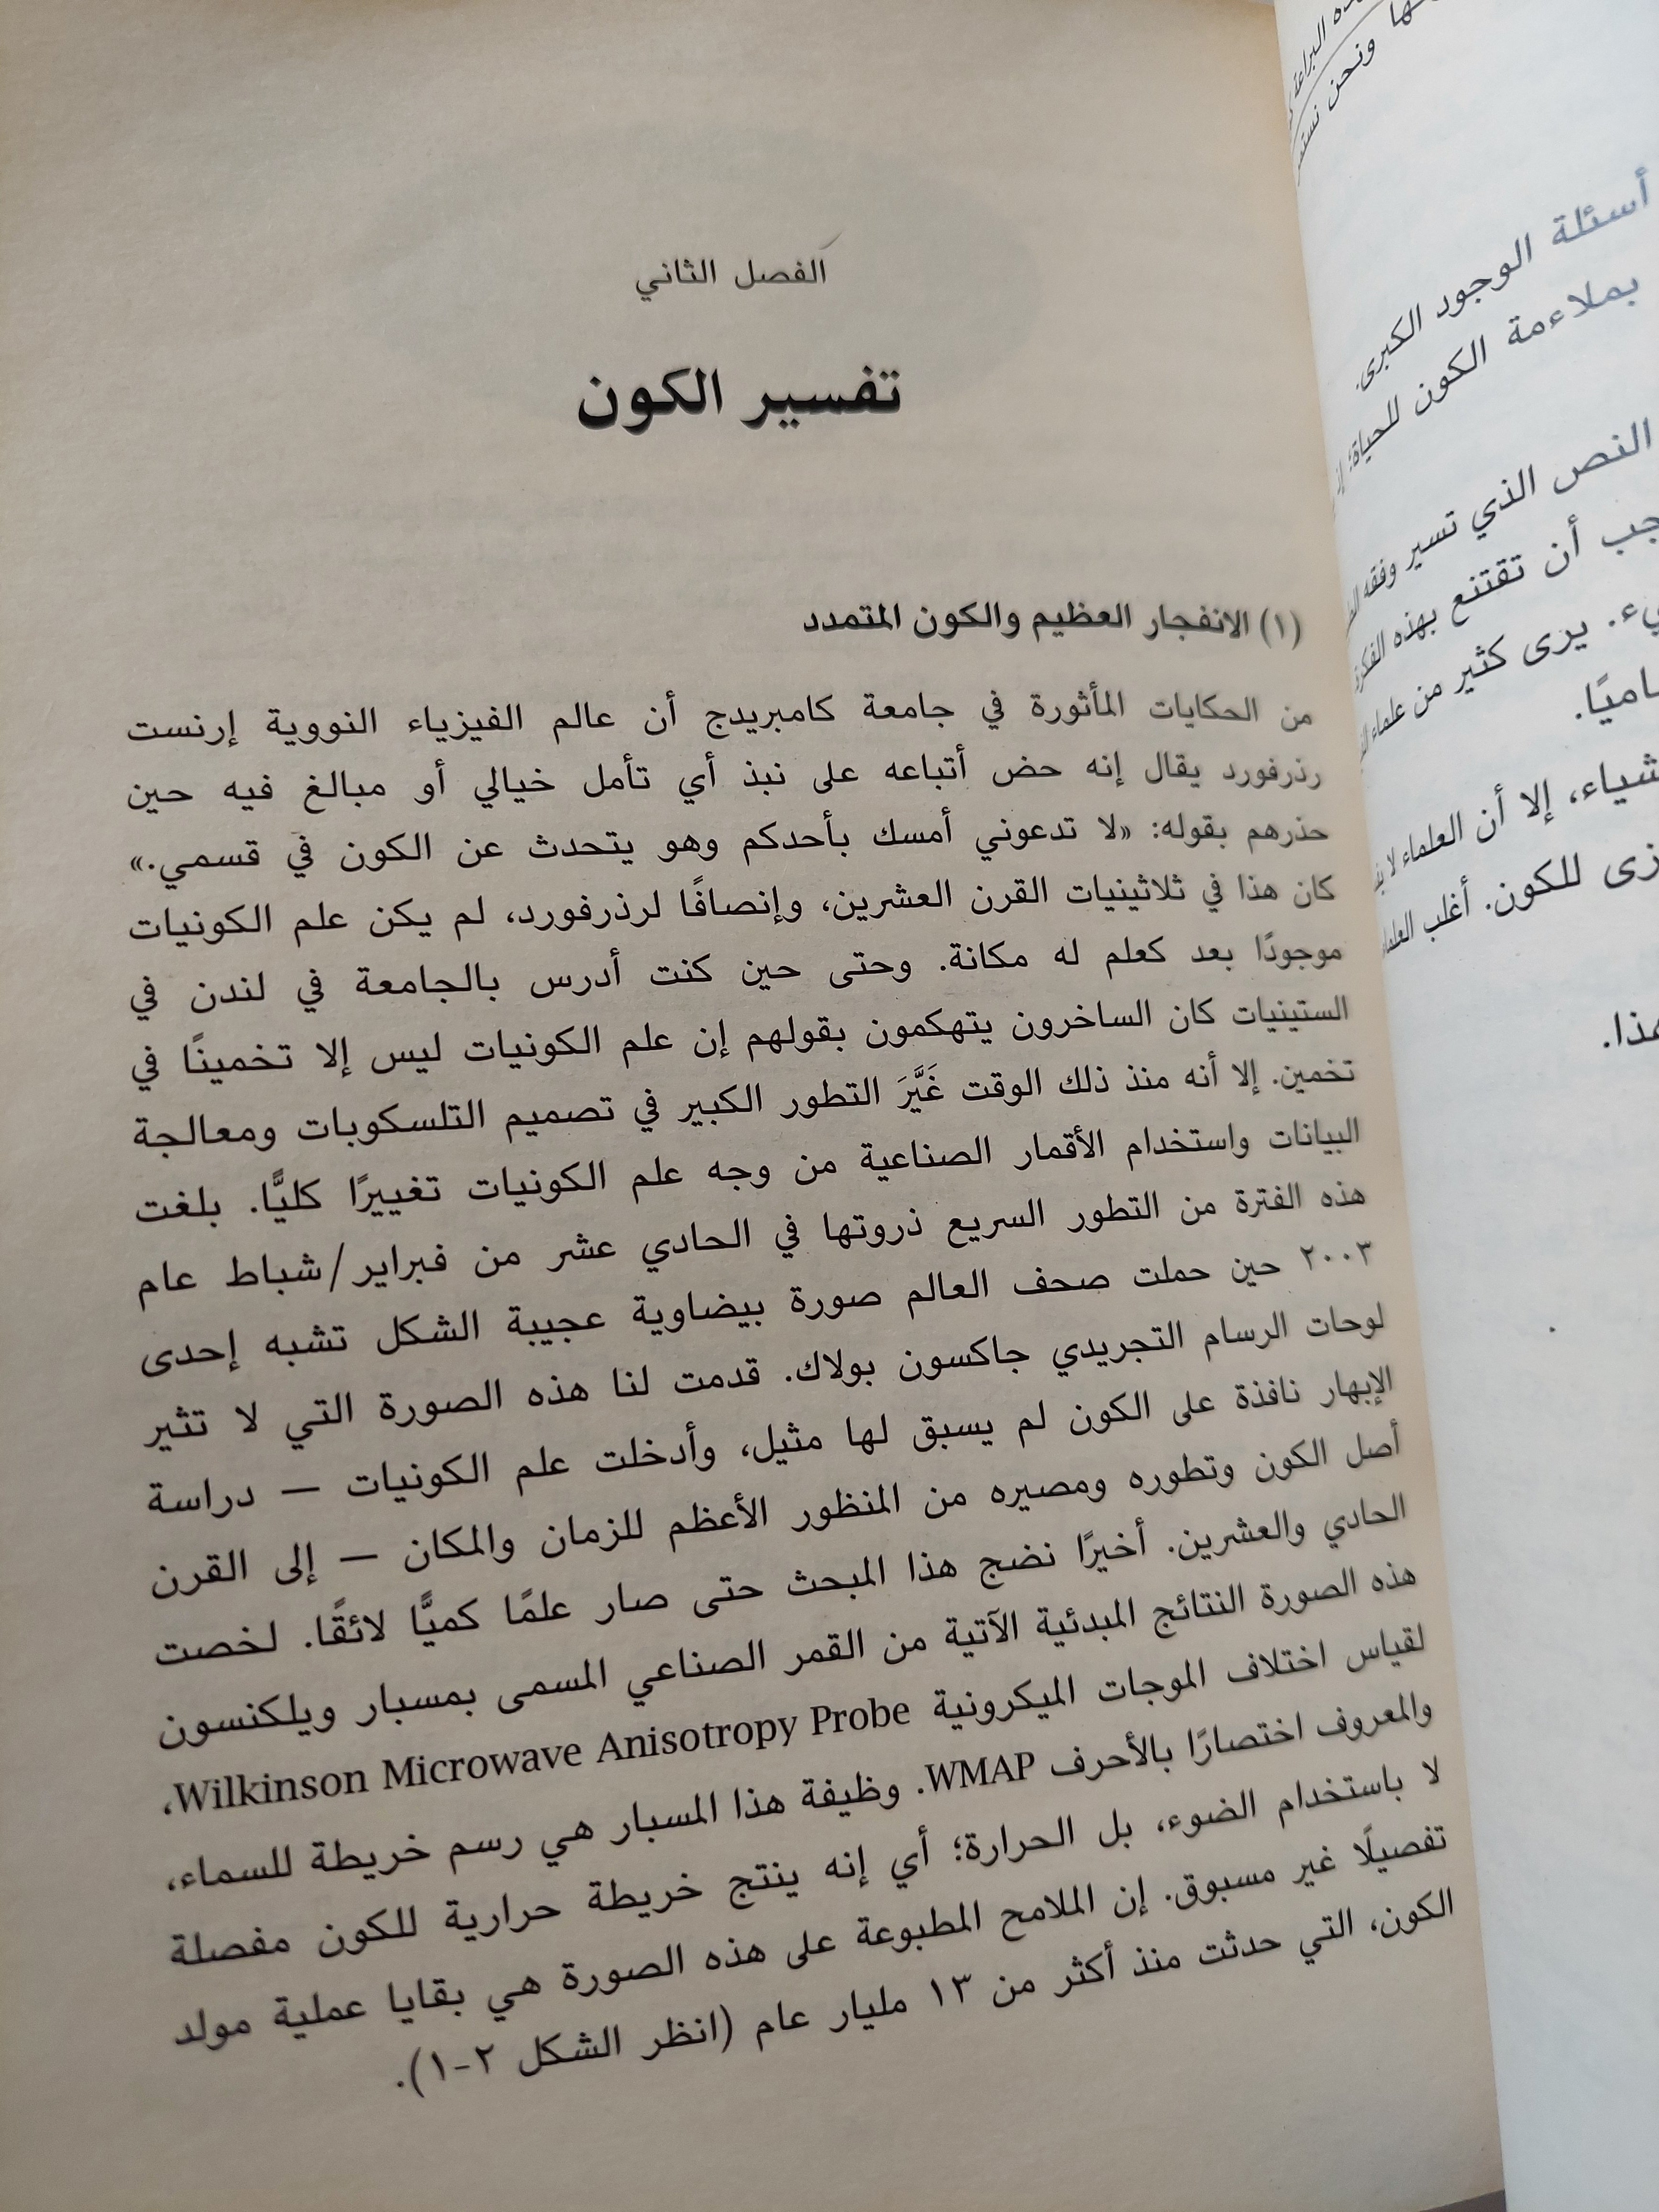 الفصل الثاني
تفسير الكون
(١) الانفجار العظيم والكون المتمدد
من الحكايات المأثورة في جامعة كامبريدج أن عالم الفيزياء النووية إرنست
رذرفورد يقال إنه حض أتباعه على نبذ أي تأمل خيالي أو مبالغ فيه حين
حذرهم بقوله: «لا تدعوني أمسك بأحدكم وهو يتحدث عن الكون في قسمي.»
كان هذا في ثلاثينيات القرن العشرين، وإنصافًا لرذرفورد، لم يكن علم الكونيات
موجودًا بعد كعلم له مكانة. وحتى حين كنت أدرس بالجامعة في لندن في
الستينيات كان الساخرون يتهكمون بقولهم إن علم الكونيات ليس إلا تخمينًا في
تخمين. إلا أنه منذ ذلك الوقت غَيَّرَ التطور الكبير في تصميم التلسكوبات ومعالجة
البيانات واستخدام الأقمار الصناعية من وجه علم الكونيات تغييرًا كليًّا. بلغت
هذه الفترة من التطور السريع ذروتها في الحادي عشر من فبراير/شباط عام
٢٠٠٣ حين حملت صحف العالم صورة بيضاوية عجيبة الشكل تشبه إحدى
لوحات الرسام التجريدي جاكسون بولاك. قدمت لنا هذه الصورة التي لا تثير
الإبهار نافذة على الكون لم يسبق لها مثيل، وأدخلت علم الكونيات — دراسة
أصل الكون وتطوره ومصيره من المنظور الأعظم للزمان والمكان — إلى القرن
الحادي والعشرين. أخيرًا نضج هذا المبحث حتى صار علمًا كميًّا لائقًا. لخصت
هذه الصورة النتائج المبدئية الآتية من القمر الصناعي المسمى بمسبار ويلكنسون
لقياس اختلاف الموجات الميكرونية Wilkinson Microwave Anisotropy Probe،
والمعروف اختصارًا بالأحرف WMAP. وظيفة هذا المسبار هي رسم خريطة للسماء،
لا باستخدام الضوء، بل الحرارة؛ أي إنه ينتج خريطة حرارية للكون مفصلة
تفصيلًا غير مسبوق. إن الملامح المطبوعة على هذه الصورة هي بقايا عملية مولد
الكون، التي حدثت منذ أكثر من ١٣ مليار عام (انظر الشكل ٢-١).
ونحن
أسئلة الوجود الكبرى.
بملاءمة الكون للحياة؛
النص الذي تسير وفقه
أن تقتنع بهذه
يرى كثير من علماء
إلا أن العلماء لا
للكون. أغلب